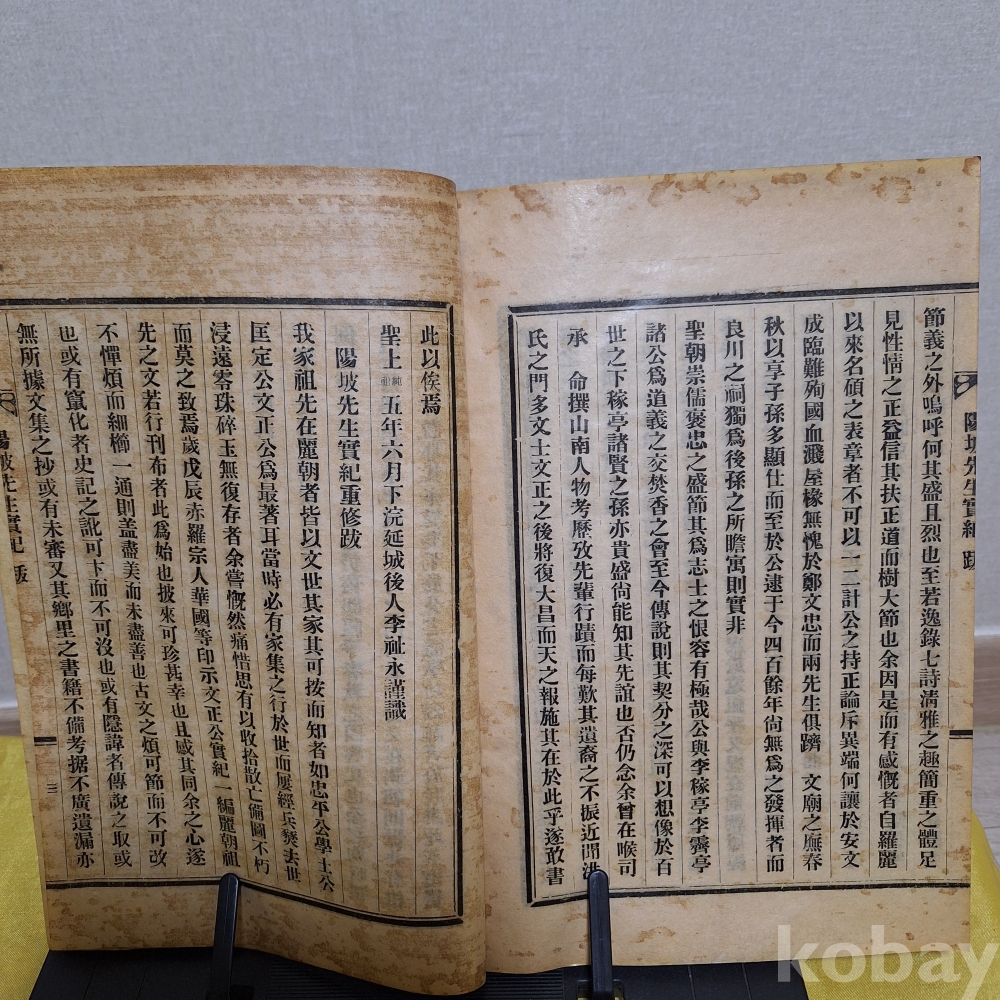 陽坡先生實紀 跋
節義之外嗚呼何其盛且烈也至若逸錄七詩淸雅之趣簡重之體足
見性情之正益信其扶正道而樹大節也余因是而有感慨者自羅麗
以來名碩之表章者不可以一二計公之持正論斥異端何讓於安文
成臨難殉國血濺屋椽無愧於鄭文忠而兩先生俱躋 文廟之廡春
秋以享子孫多顯仕而至於公逮于今四百餘年尙無爲之發揮者而
良川之祠獨爲後孫之所瞻寓則實非
聖朝崇儒褒忠之盛節其爲志士之恨容有極哉公與李稼亭李霽亭
諸公爲道義之交焚香之會至今傳說則其契分之深可以想像於百
世之下稼亭諸賢之孫亦貴盛尙能知其先誼也否仍念余曾在喉司
承 命撰山南人物考歷攷先輩行蹟而每歎其遺裔之不振近聞洪
氏之門多文士文正之後將復大昌而天之報施其在於此乎遂敢書
此以俟焉
聖上純祖五年六月下浣延城後人李祉永謹識
陽坡先生實紀重修跋
我家祖先在麗朝者皆以文世其家其可按而知者如忠平公學士公
匡定公文正公爲最著耳當時必有家集之行於世而屢經兵燹去世
浸遠零珠碎玉無復存者余嘗慨然痛惜思有以收拾散亡備圖不朽
而莫之致焉歲戊辰赤羅宗人華國等印示文正公實紀一編麗朝祖
先之文若行刊布者此爲始也披來可珍甚幸也且感其同余之心遂
不憚煩而細櫛一通則盖盡美而未盡善也古文之煩可節而不可改
也或有竄化者史記之訛可卞而不可沒也或有隱諱者傳說之取或
無所據文集之抄或有未審又其鄕里之書籍不備考据不廣遺漏亦
陽坡先生實紀 跋 三
kobay